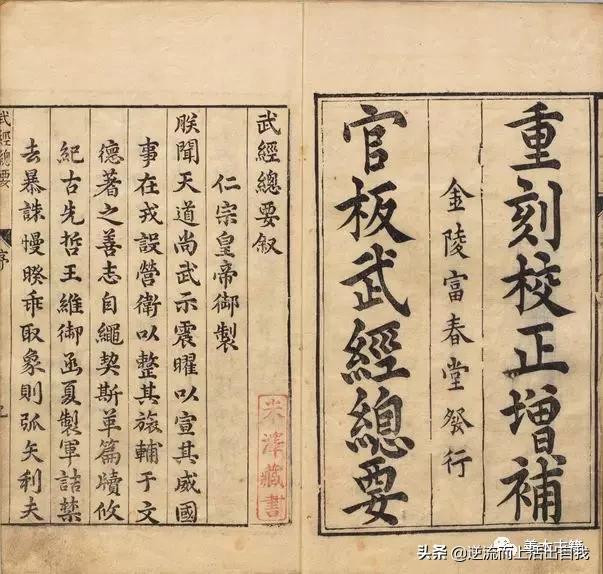 重刻校正增補
金陵富春堂發行
官板武經總要
武經總要叙
仁宗皇帝御製
朕聞天道尚武示震曜以宣其威國
事在戎設營衛以整其旅輔于文
德著之善志自繩契斯革篇牘攸
紀古先哲王維御函夏製軍詰禁
去暴誅慢暌乖取象則弧矢利夫
武經總要
序
米澤藏書
善本古籍
头条 @逆流而上活出自我